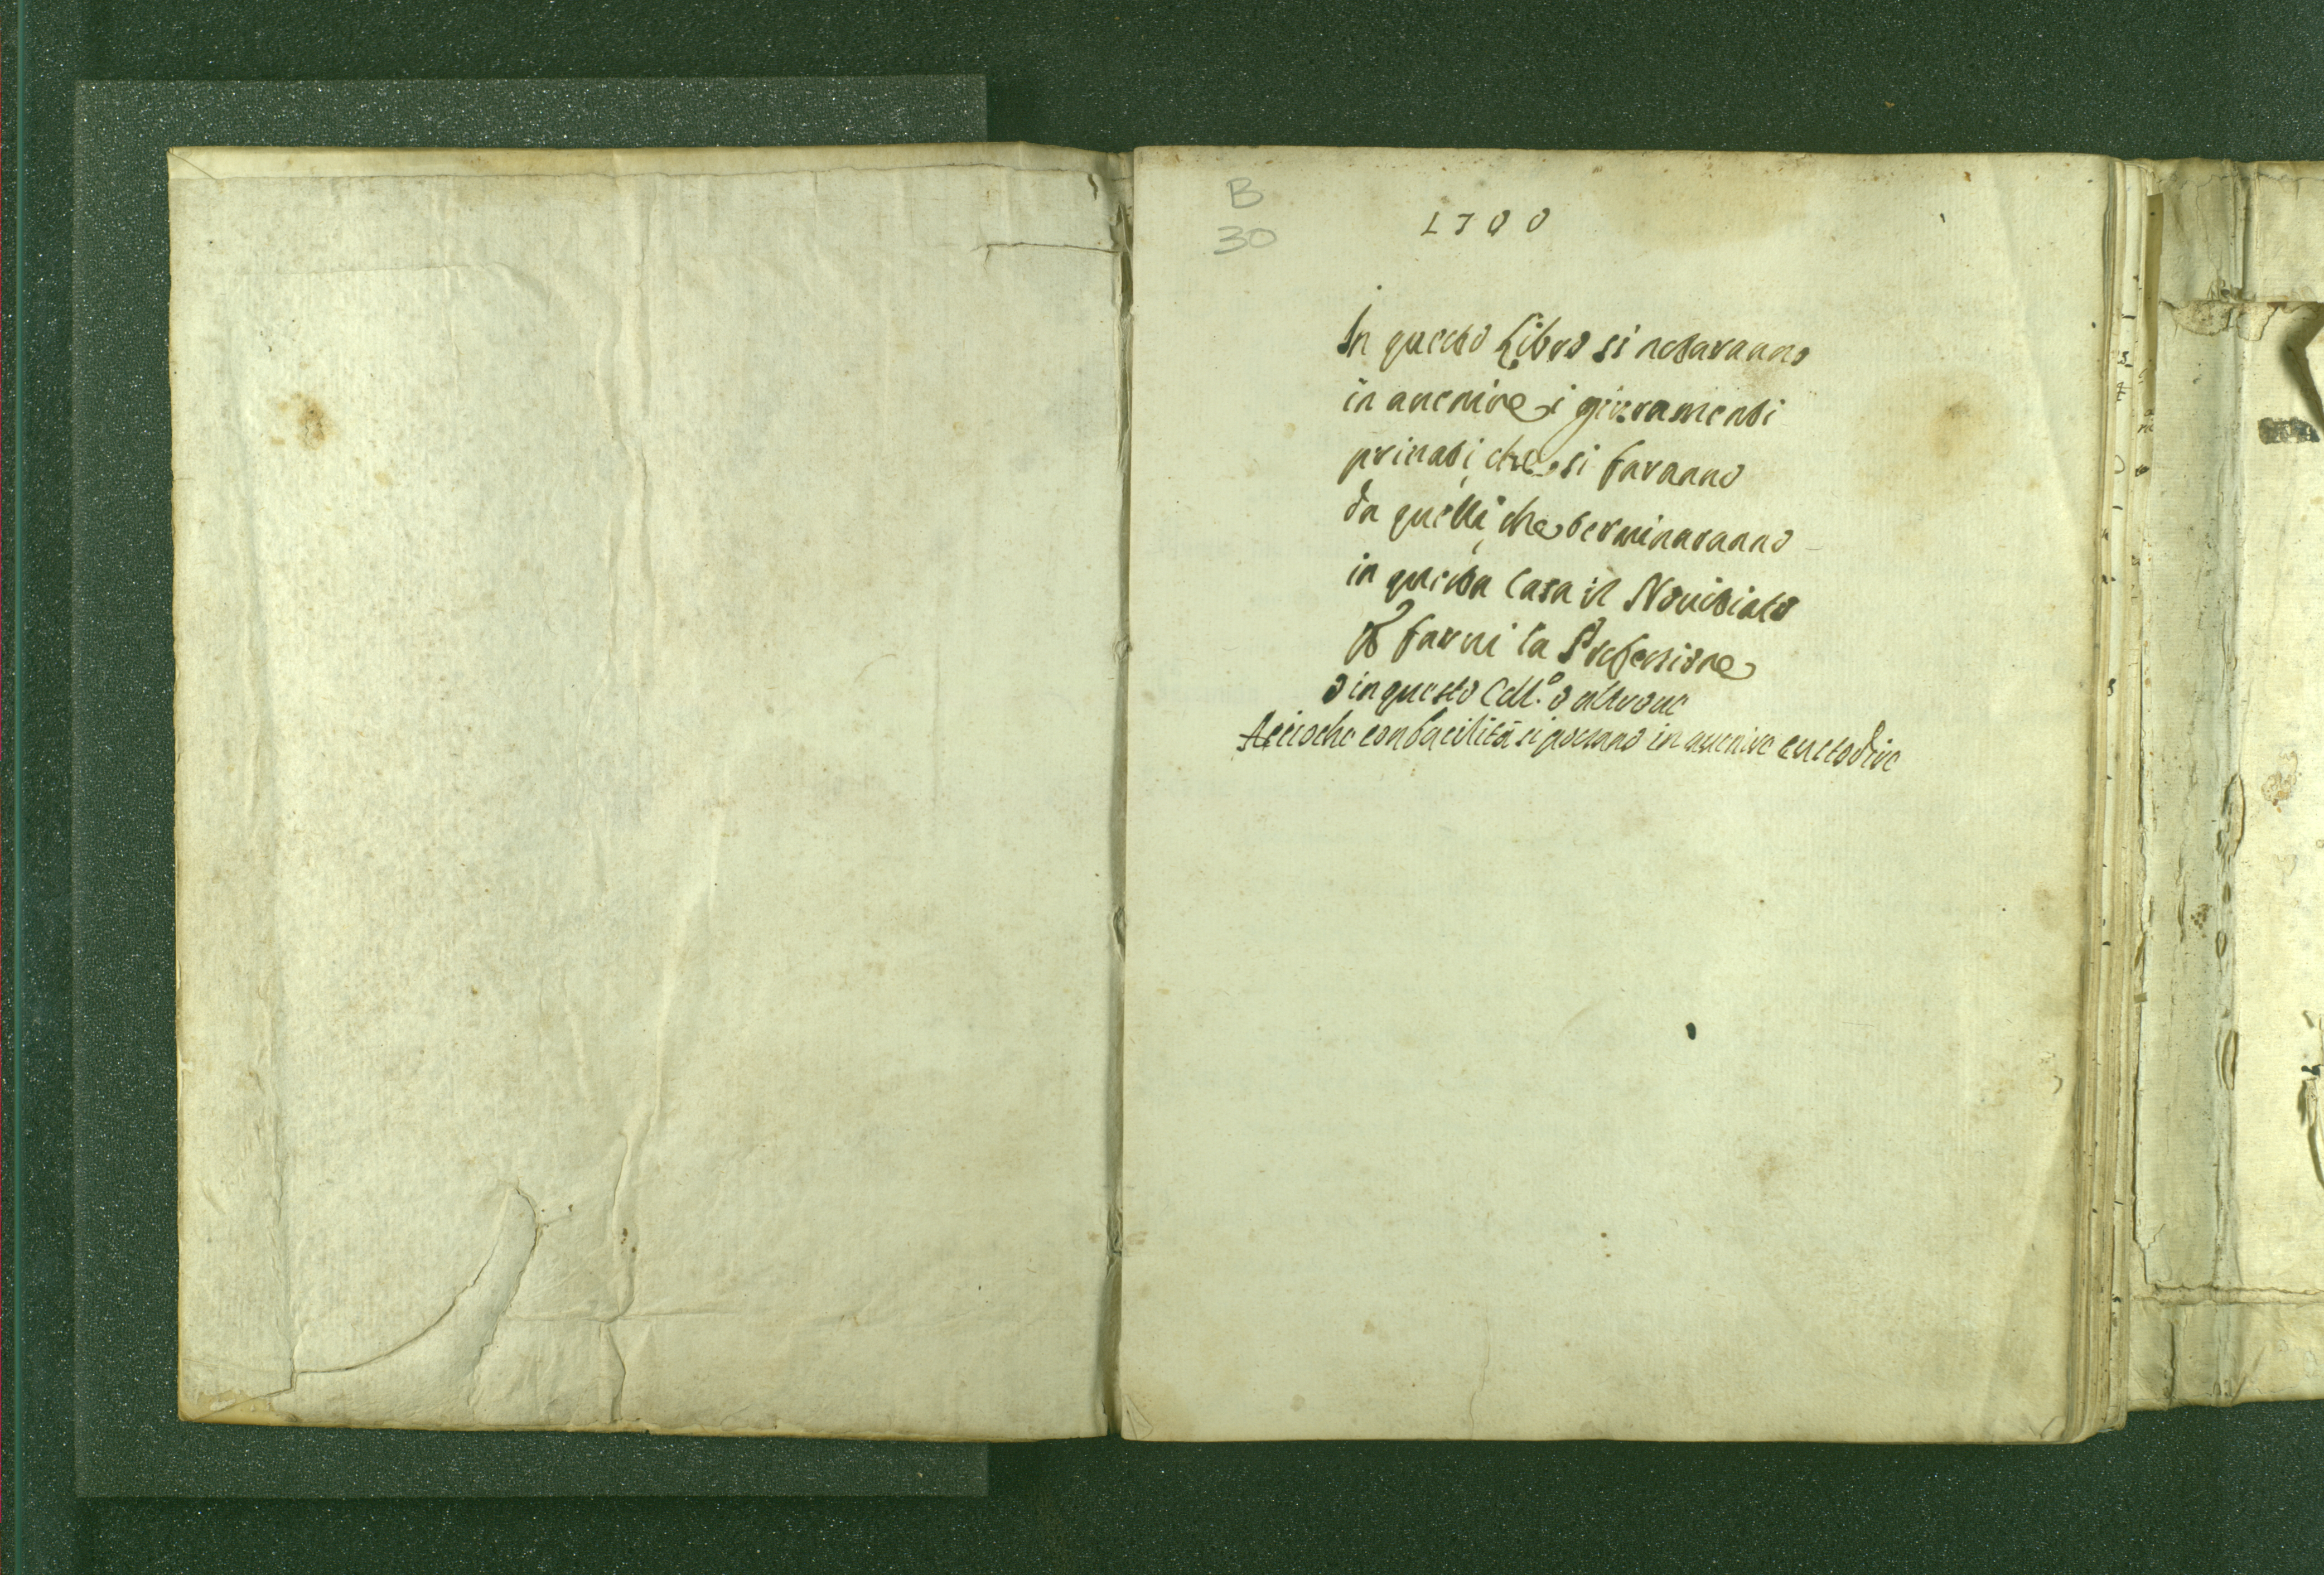 B
30
1700
In questo Libro si notaranno
in auenire i giuramenti
priuati che si faranno
da quelli che terminaranno
in questa Casa il Nouitiato
p farui la Professione
o in questo Coll.º o altroue
Accioche con facilità si possano in auenire custodire